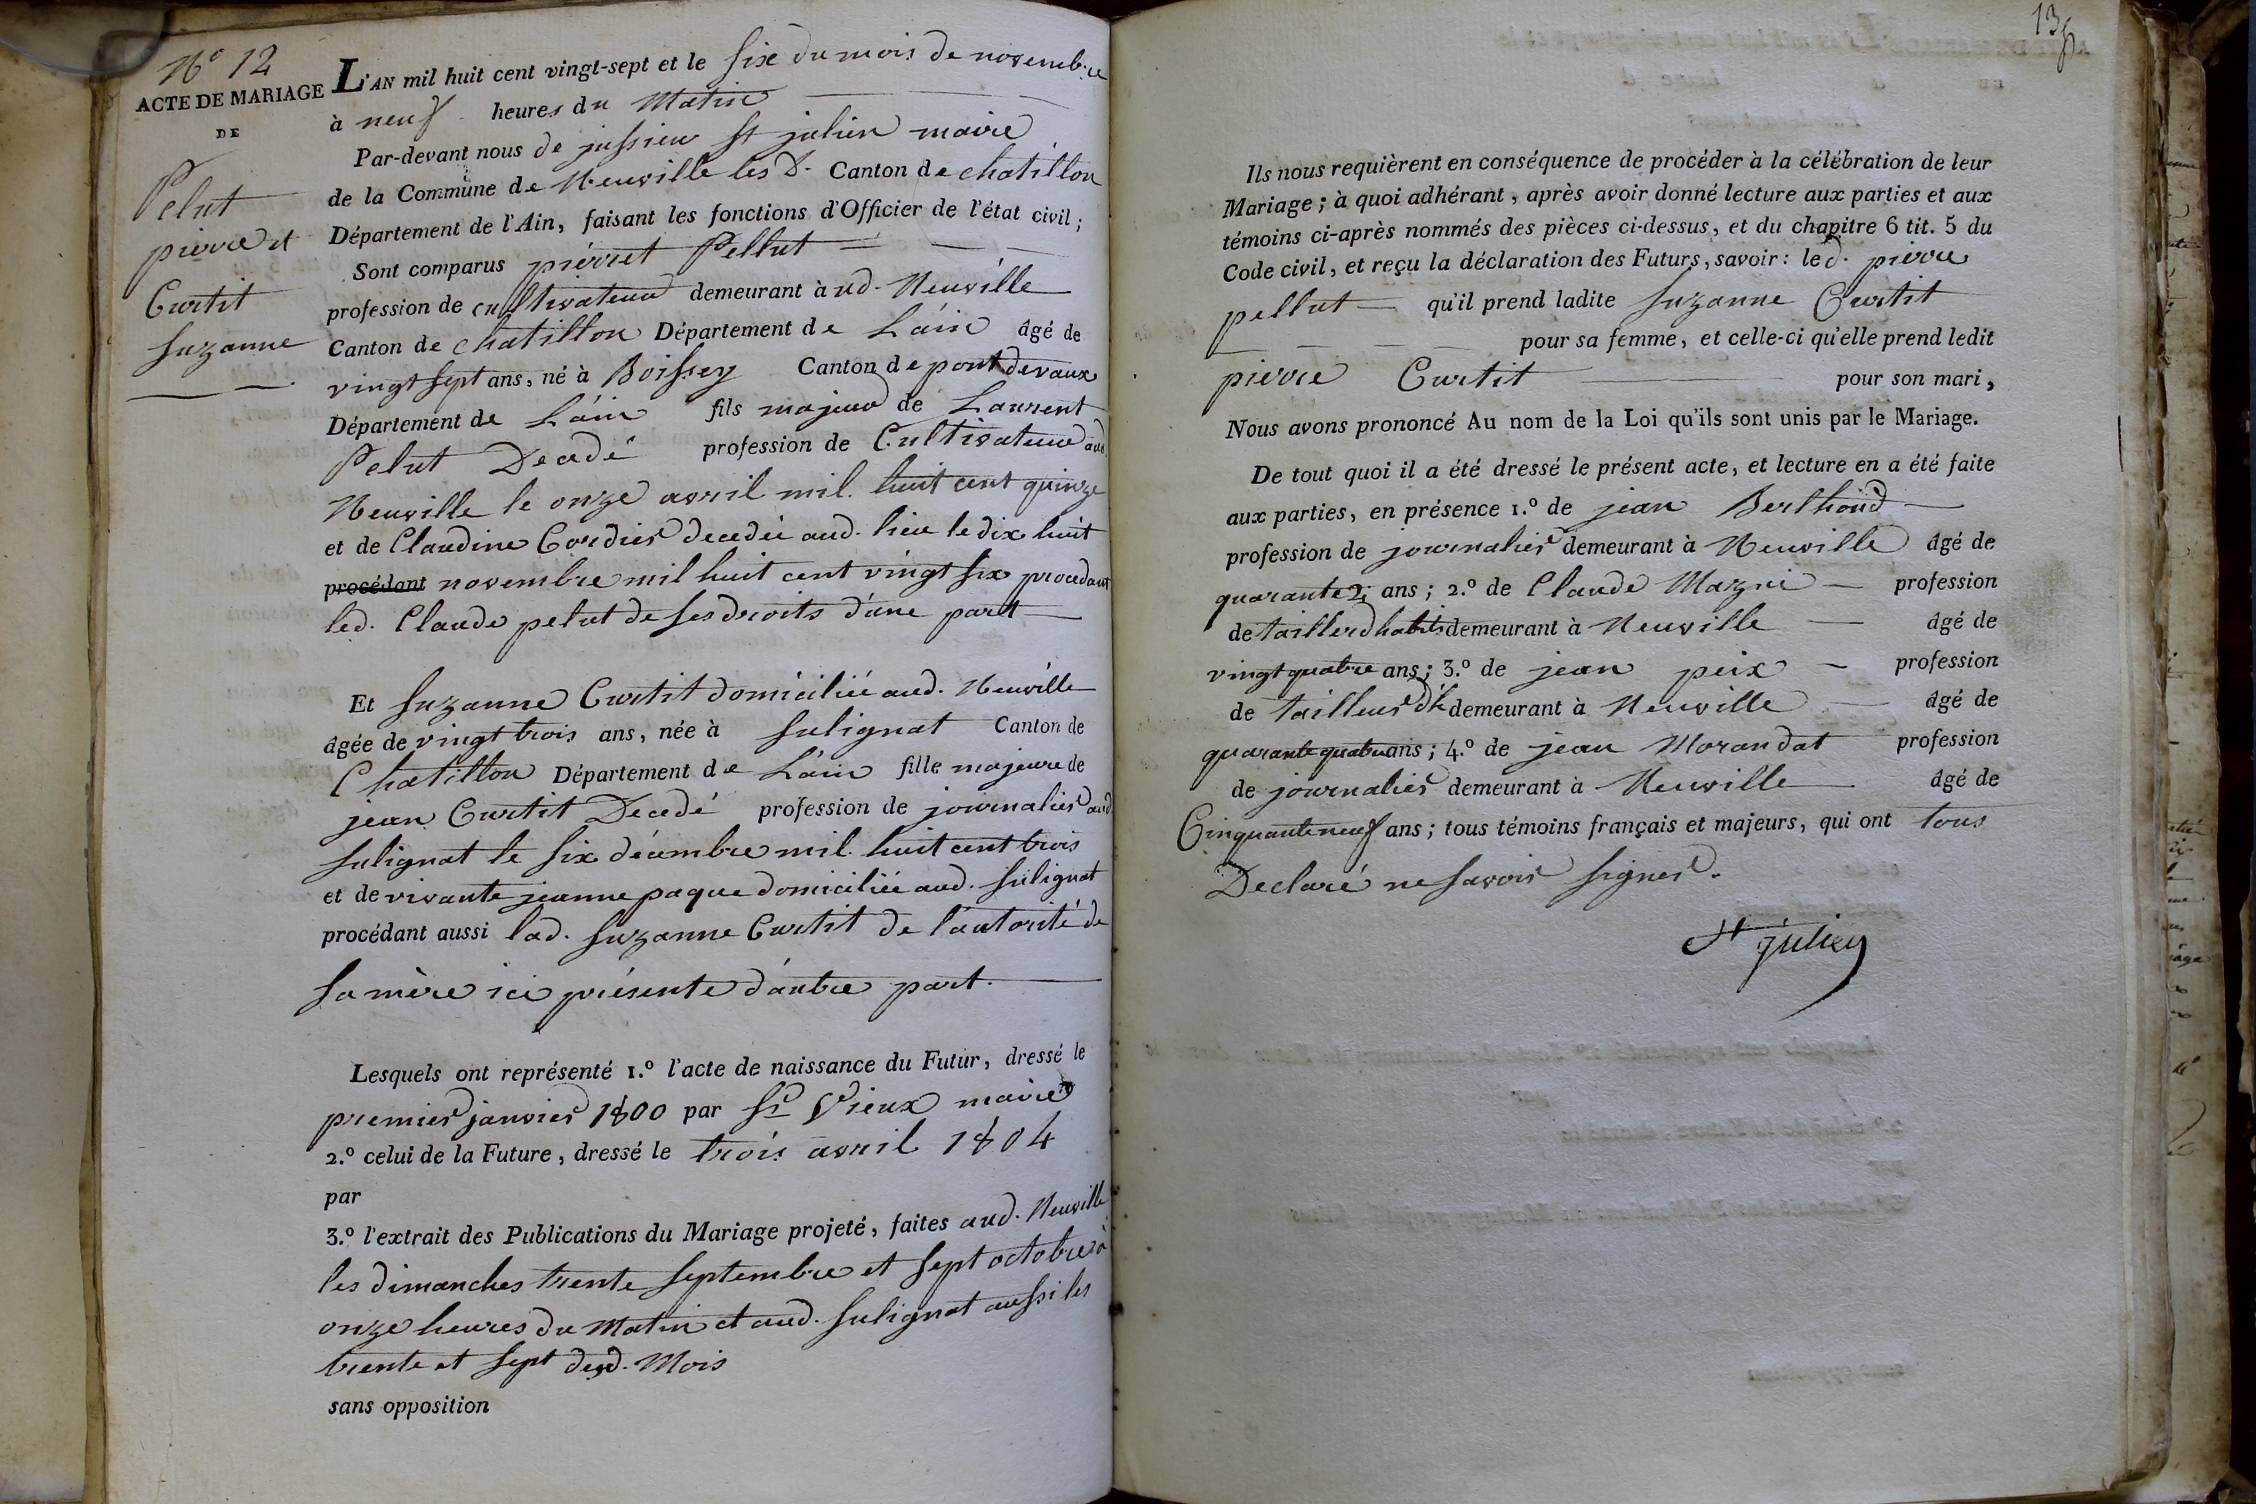 N.° 12
ACTE DE MARIAGE
DE
Pelut
pierre et
Curtit
Suzanne
L'AN mil huit cent vingt-sept et le six du mois de novembre
à neuf heures du Matin
Par-devant nous de jussieu St julien maire
de la Commune de Neuville les D. Canton de chatillon
Département de l'Ain, faisant les fonctions d'Officier de l'état civil ;
Sont comparus pierret Pellut
profession de cultivateur demeurant à ud. Neuville
Canton de chatillon Département de L'ain âgé de
vingt sept ans, né à Boissey Canton de pont devaux
Département de L'ain fils majeur de Laurent
Pelut Decedé profession de Cultivateur aud.
Neuville le onze avril mil. huit cent quinze
et de Claudine Cordier decedée aud. lieu le dix huit
procédant novembre mil huit cent vingt six procedant
led. Claude pelut de ses droits d'une part
Et Suzanne Curtit domiciliée aud. Neuville
âgée de vingt trois ans, née à Sulignat Canton de
Chatillon Département de L'ain fille majeure de
jean Curtit Decedé profession de journalier aud
Sulignat le six décembre mil. huit cent trois
et de vivante jeanne paque domiciliée aud. Sulignat
procédant aussi lad. Suzanne Curtit de l'autorité de
sa mère ici présente d'autre part.
Lesquels ont représenté 1.° l'acte de naissance du Futur, dressé le
premier janvier 1800 par Sr Vieux maire
2.° celui de la Future, dressé le trois avril 1804
par
3.° l'extrait des Publications du Mariage projeté, faites aud. Neuville
les dimanches trente Septembre et Sept octobre à
onze heures du Matin et aud. Sulignat aussi les
trente et Sept desd. Mois
sans opposition
13
Ils nous requièrent en conséquence de procéder à la célébration de leur
Mariage ; à quoi adhérant, après avoir donné lecture aux parties et aux
témoins ci-après nommés des pièces ci-dessus, et du chapitre 6 tit. 5 du
Code civil, et reçu la déclaration des Futurs, savoir : led. pierre
pellut qu'il prend ladite Suzanne Curtit
pour sa femme, et celle-ci qu'elle prend ledit
pierre Curtit pour son mari,
Nous avons prononcé Au nom de la Loi qu'ils sont unis par le Mariage.
De tout quoi il a été dressé le présent acte, et lecture en a été faite
aux parties, en présence 1.° de jean Berthoud
profession de journalier demeurant à Neuville âgé de
quarante 2 ans ; 2.° de Claude Mazni profession
de tailler d'habits demeurant à Neuville âgé de
vingt quatre ans ; 3.° de jean peix profession
de tailleur d'h demeurant à Neuville âgé de
quarante quatre ans ; 4.° de jean Morandat profession
de journalier demeurant à Neuville âgé de
Cinquante neuf ans ; tous témoins français et majeurs, qui ont tous
Declaré ne Savoir Signer.
St Julien